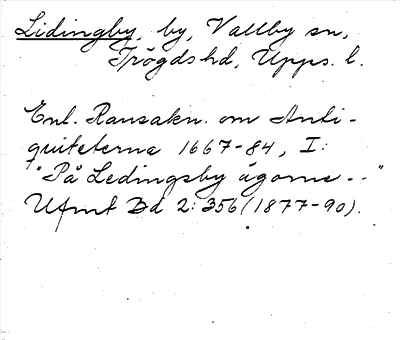 Lidingby, by, Vallby sn,
Trögds hd, Upps. l.
Enl. Ransakn. om Anti-
quiteterna 1667-84, I:
"På Ledingsby ägorne - - "
UFmt Bd 2: 356 (1877-90).